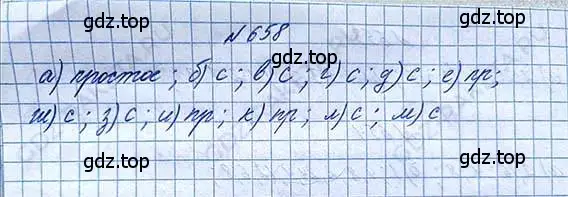 №658
gdz.top
а) простое; б) с; в) с; г) с; д) с; е) пр;
gdz.top
gdz.top
ж) с; з) с; и) пр; к) пр; л) с; м) с
gdz.top
gdz.top